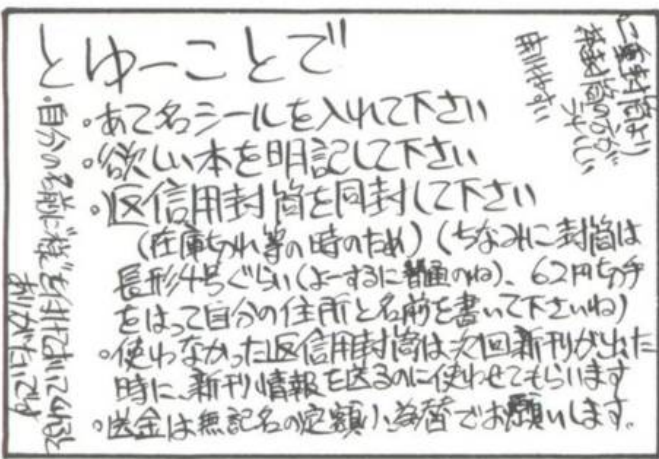 とゆーことで
・あて名シールを入れて下さい
・欲しい本を明記して下さい
・返信用封筒を同封して下さい
(在庫切れ等の時のため)(ちなみに封筒は
長形4号ぐらい(よーするに普通のね)、62円切手
をはって自分の住所と名前を書いて下さいね)
・使わなかった返信用封筒は次回新刊が出た
時に、新刊情報を送るのに使わせてもらいます
・送金は無記名の定額小為替でお願いします。
・自分の名前に様を付けておいてくれると
ありがたいです
二重封筒より